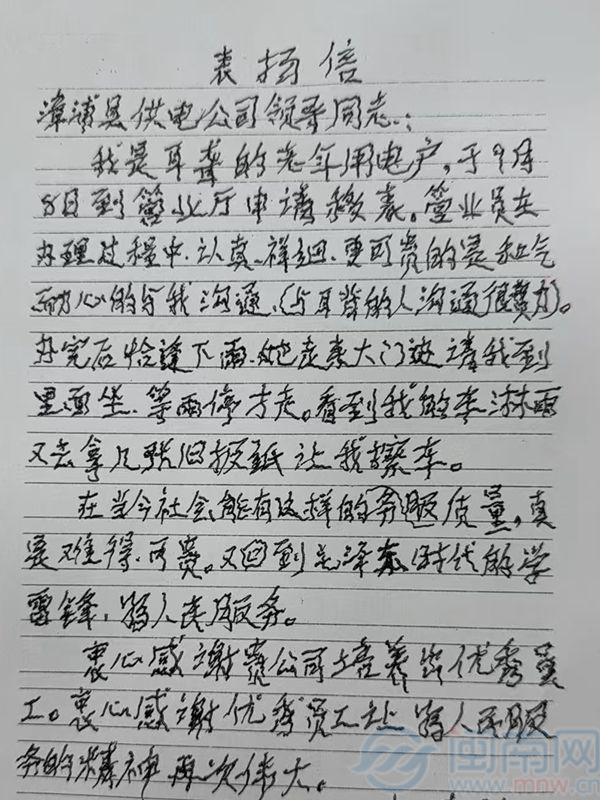 表扬信
漳浦县供电公司领导同志:
我是耳聋的老年用电户,于9月
8日到营业厅申请移表。营业员在
办理过程中.认真.祥细.更可贵的是和气
耐心的与我沟通,(与耳背的人沟通很费力)。
办完后恰逢下雨.她走来大门边请我到
里面坐.等雨停才走。看到我的车淋雨
又去拿几张旧报纸让我擦车。
在当今社会,能有这样的务服质量,真
是又难得.可贵。又回到毛泽东时代的学
雷锋,为人民服务。
衷心感谢贵公司培养出优秀员
工。衷心感谢优秀员工让为人民服
务的精神再次伟大。
闽南网
www.mnw.cn